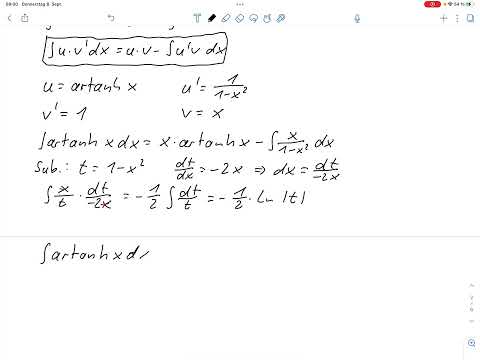 09:00 Donnerstag 8. Sept.
54 %
∫u·v'dx = u·v - ∫u'v dx
u = artanh x   u' = 1/(1-x²)
v' = 1   v = x
∫artanh x dx = x·artanh x - ∫ x/(1-x²) dx
Sub.: t = 1-x²   dt/dx = -2x ⇒ dx = dt/(-2x)
∫ x/t · dt/(-2x) = -1/2 ∫ dt/t = -1/2 · ln |t|
∫artanh x d